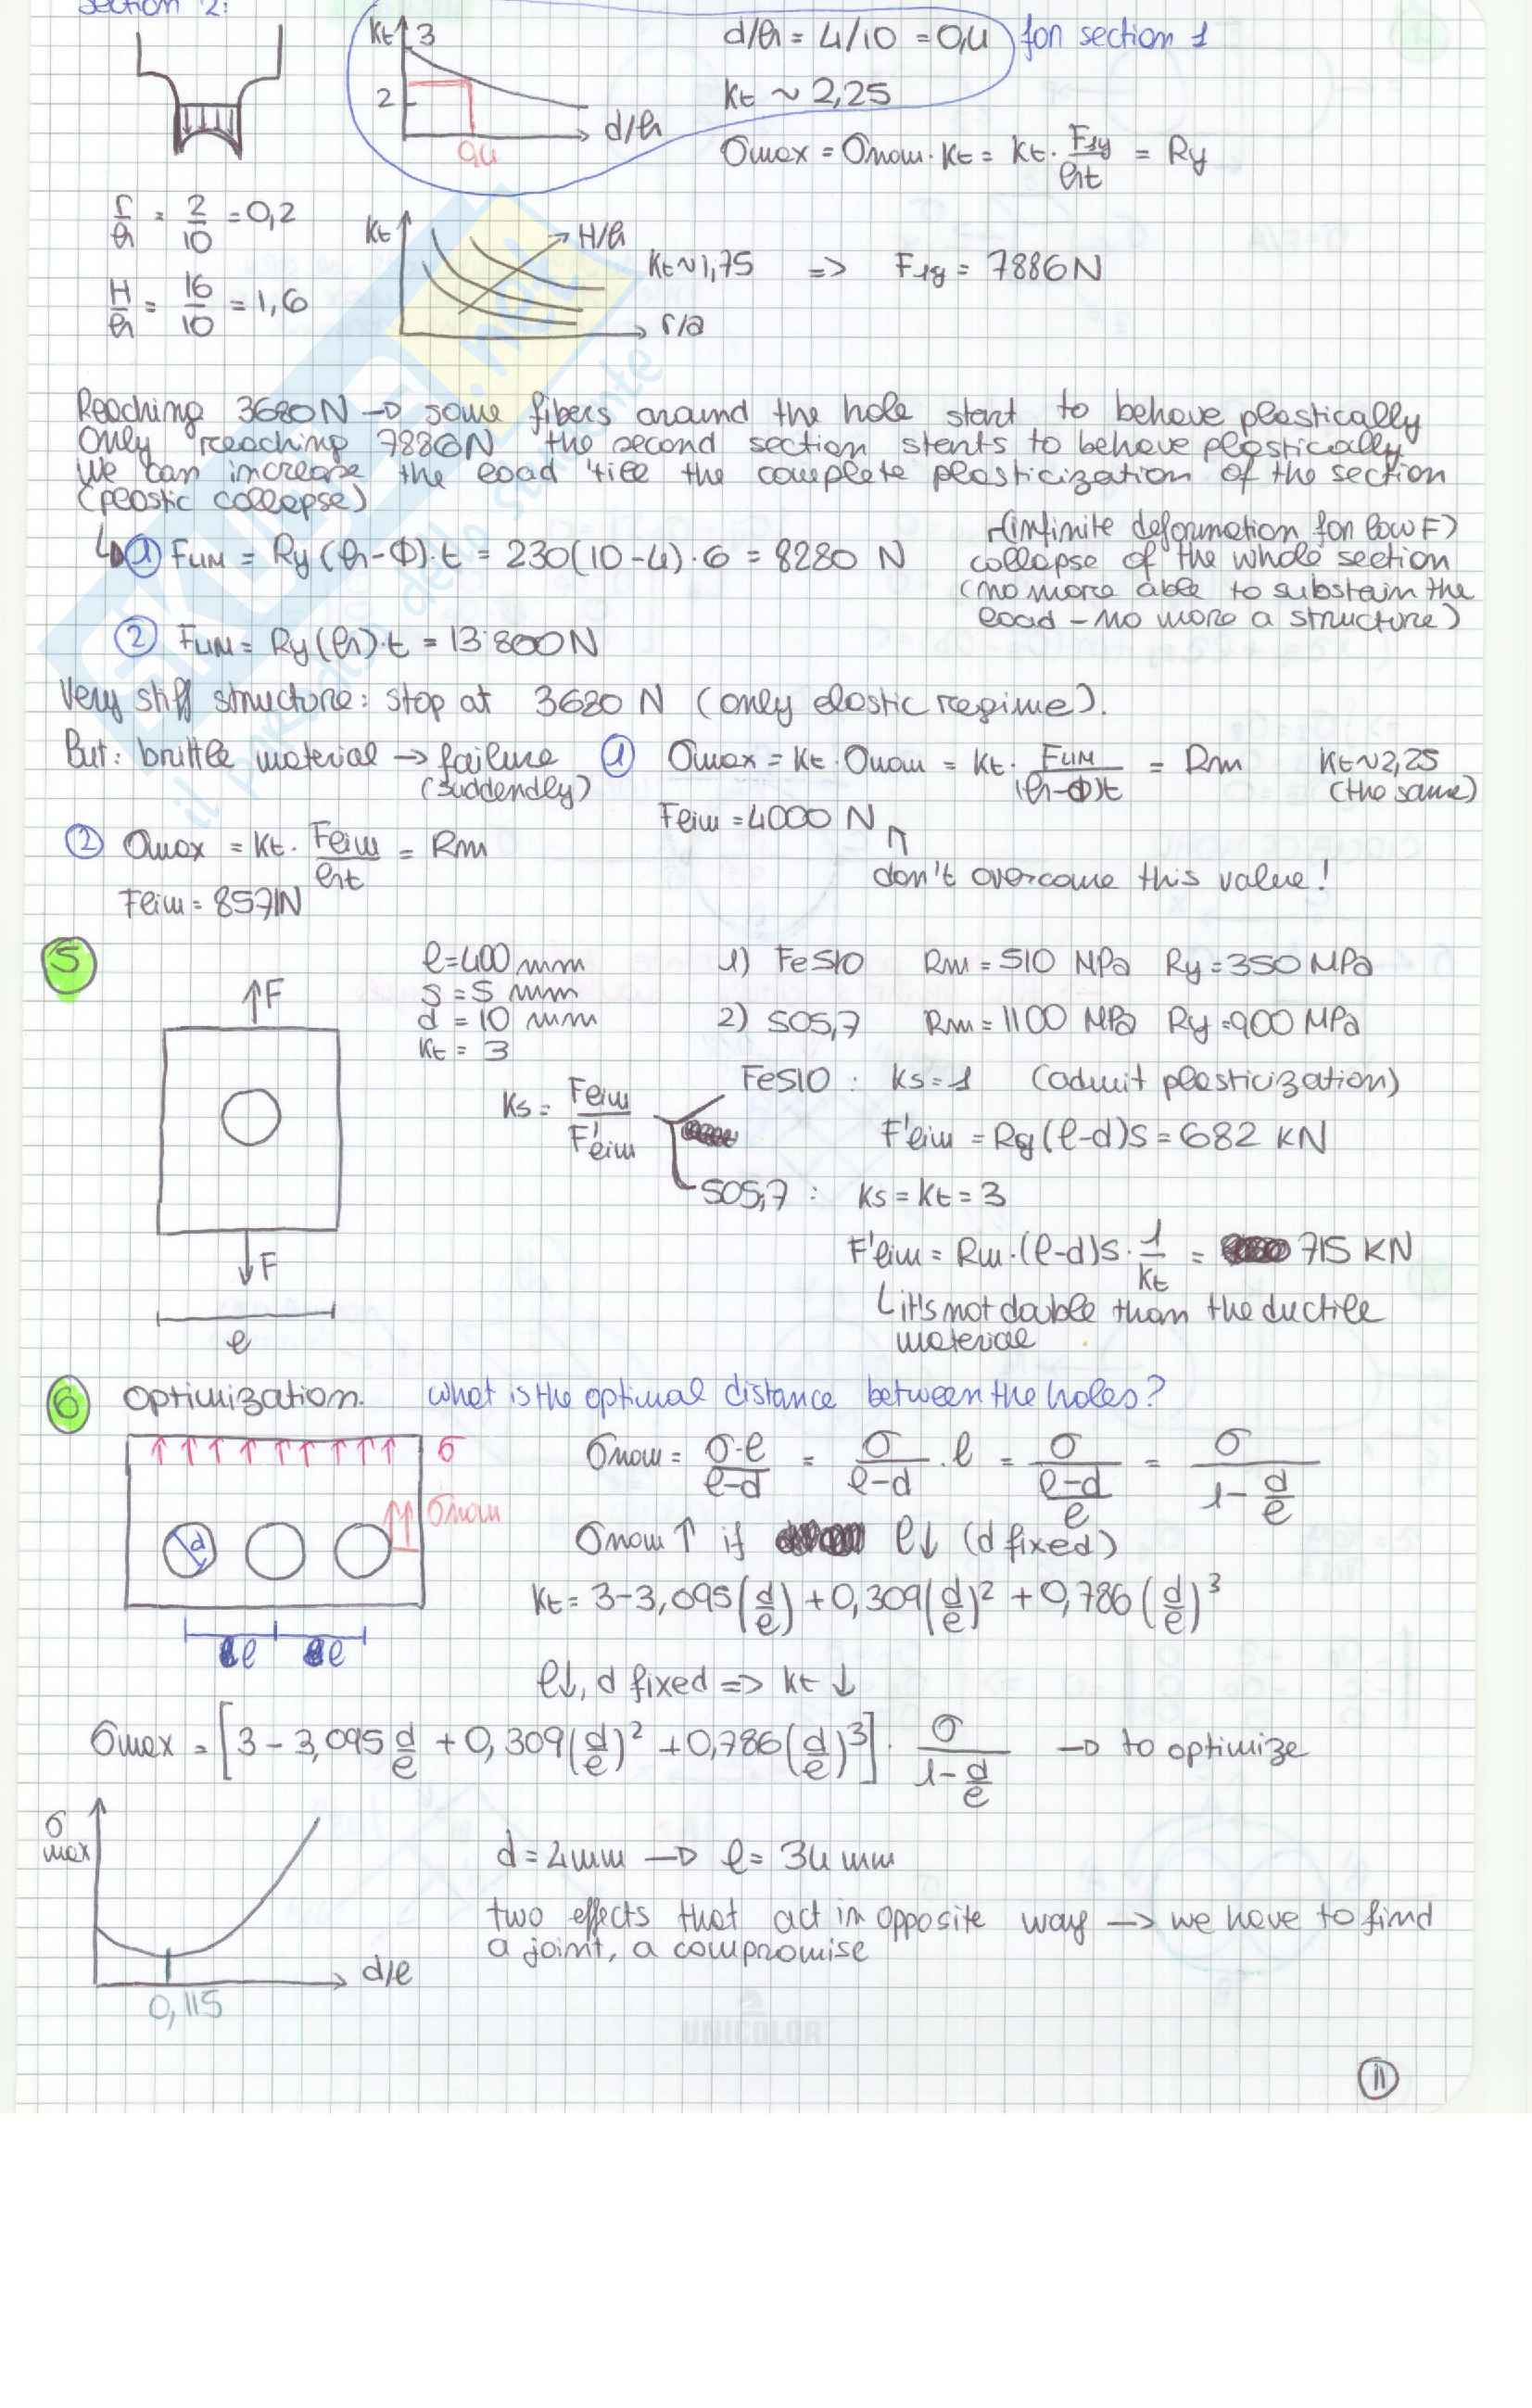 Section 2:
Kt 3
2
0,4
d/h
d/h = 4/10 = 0,4 for section 1
Kt ~ 2,25
σmax = σnom · Kt = Kt · F1y/ht = Ry
r/h = 2/10 = 0,2
H/h = 16/10 = 1,6
Kt
H/h
r/a
Kt~1,75 => F1y = 7886N
Reaching 3680N → some fibers around the hole start to behave plastically
Only reaching 7886N the second section starts to behave plastically
We can increase the load 'till the complete plasticization of the section
(plastic collapse)
↳ 1 FLIM = Ry (h-Φ)·t = 230(10-4)·6 = 8280 N
(infinite deformation for low F)
collapse of the whole section
(no more able to substain the
load - no more a structure)
2 FLIM = Ry(h)·t = 13'800N
Very stiff structure: stop at 3680 N (only elastic regime).
But: brittle material → failure
(suddendly)
1 σmax = Kt · σnom = Kt · FLIM/(h-Φ)t = Rm Kt~2,25
(the same)
Flim = 4000 N
don't overcome this value!
2 σmax = Kt · Flim/ht = Rm
Flim = 8571N
5
F
F
l
l=400 mm
s = 5 mm
d = 10 mm
Kt = 3
1) Fe510 Rm = 510 MPa Ry=350MPa
2) SO5,7 Rm=1100 MPa Ry=900 MPa
Ks = Flim/F'lim
Fe510 : Ks=1 (admit plasticization)
F'lim = Ry(l-d)s = 682 KN
SO5,7 : Ks = Kt = 3
F'lim = Rm·(l-d)s · 1/Kt = 715 KN
↳ it's not double than the ductile
material
6 Optimization. What is the optimal distance between the holes?
σ
σnom
d
l l
σnom = σ·l/l-d = σ/l-d · l = σ/(l-d/l) = σ/(1-d/l)
σnom ↑ if l↓ (d fixed)
Kt = 3-3,095(d/l) + 0,309(d/l)² + 0,786(d/l)³
l↓, d fixed => Kt ↓
σmax = [3 - 3,095 d/l + 0,309(d/l)² + 0,786(d/l)³] · σ/(1-d/l) → to optimize
σ
max
d/l
0,115
d=4mm → l= 34 mm
two effects that act in opposite way → we have to find
a joint, a compromise
UNICOLOR
11